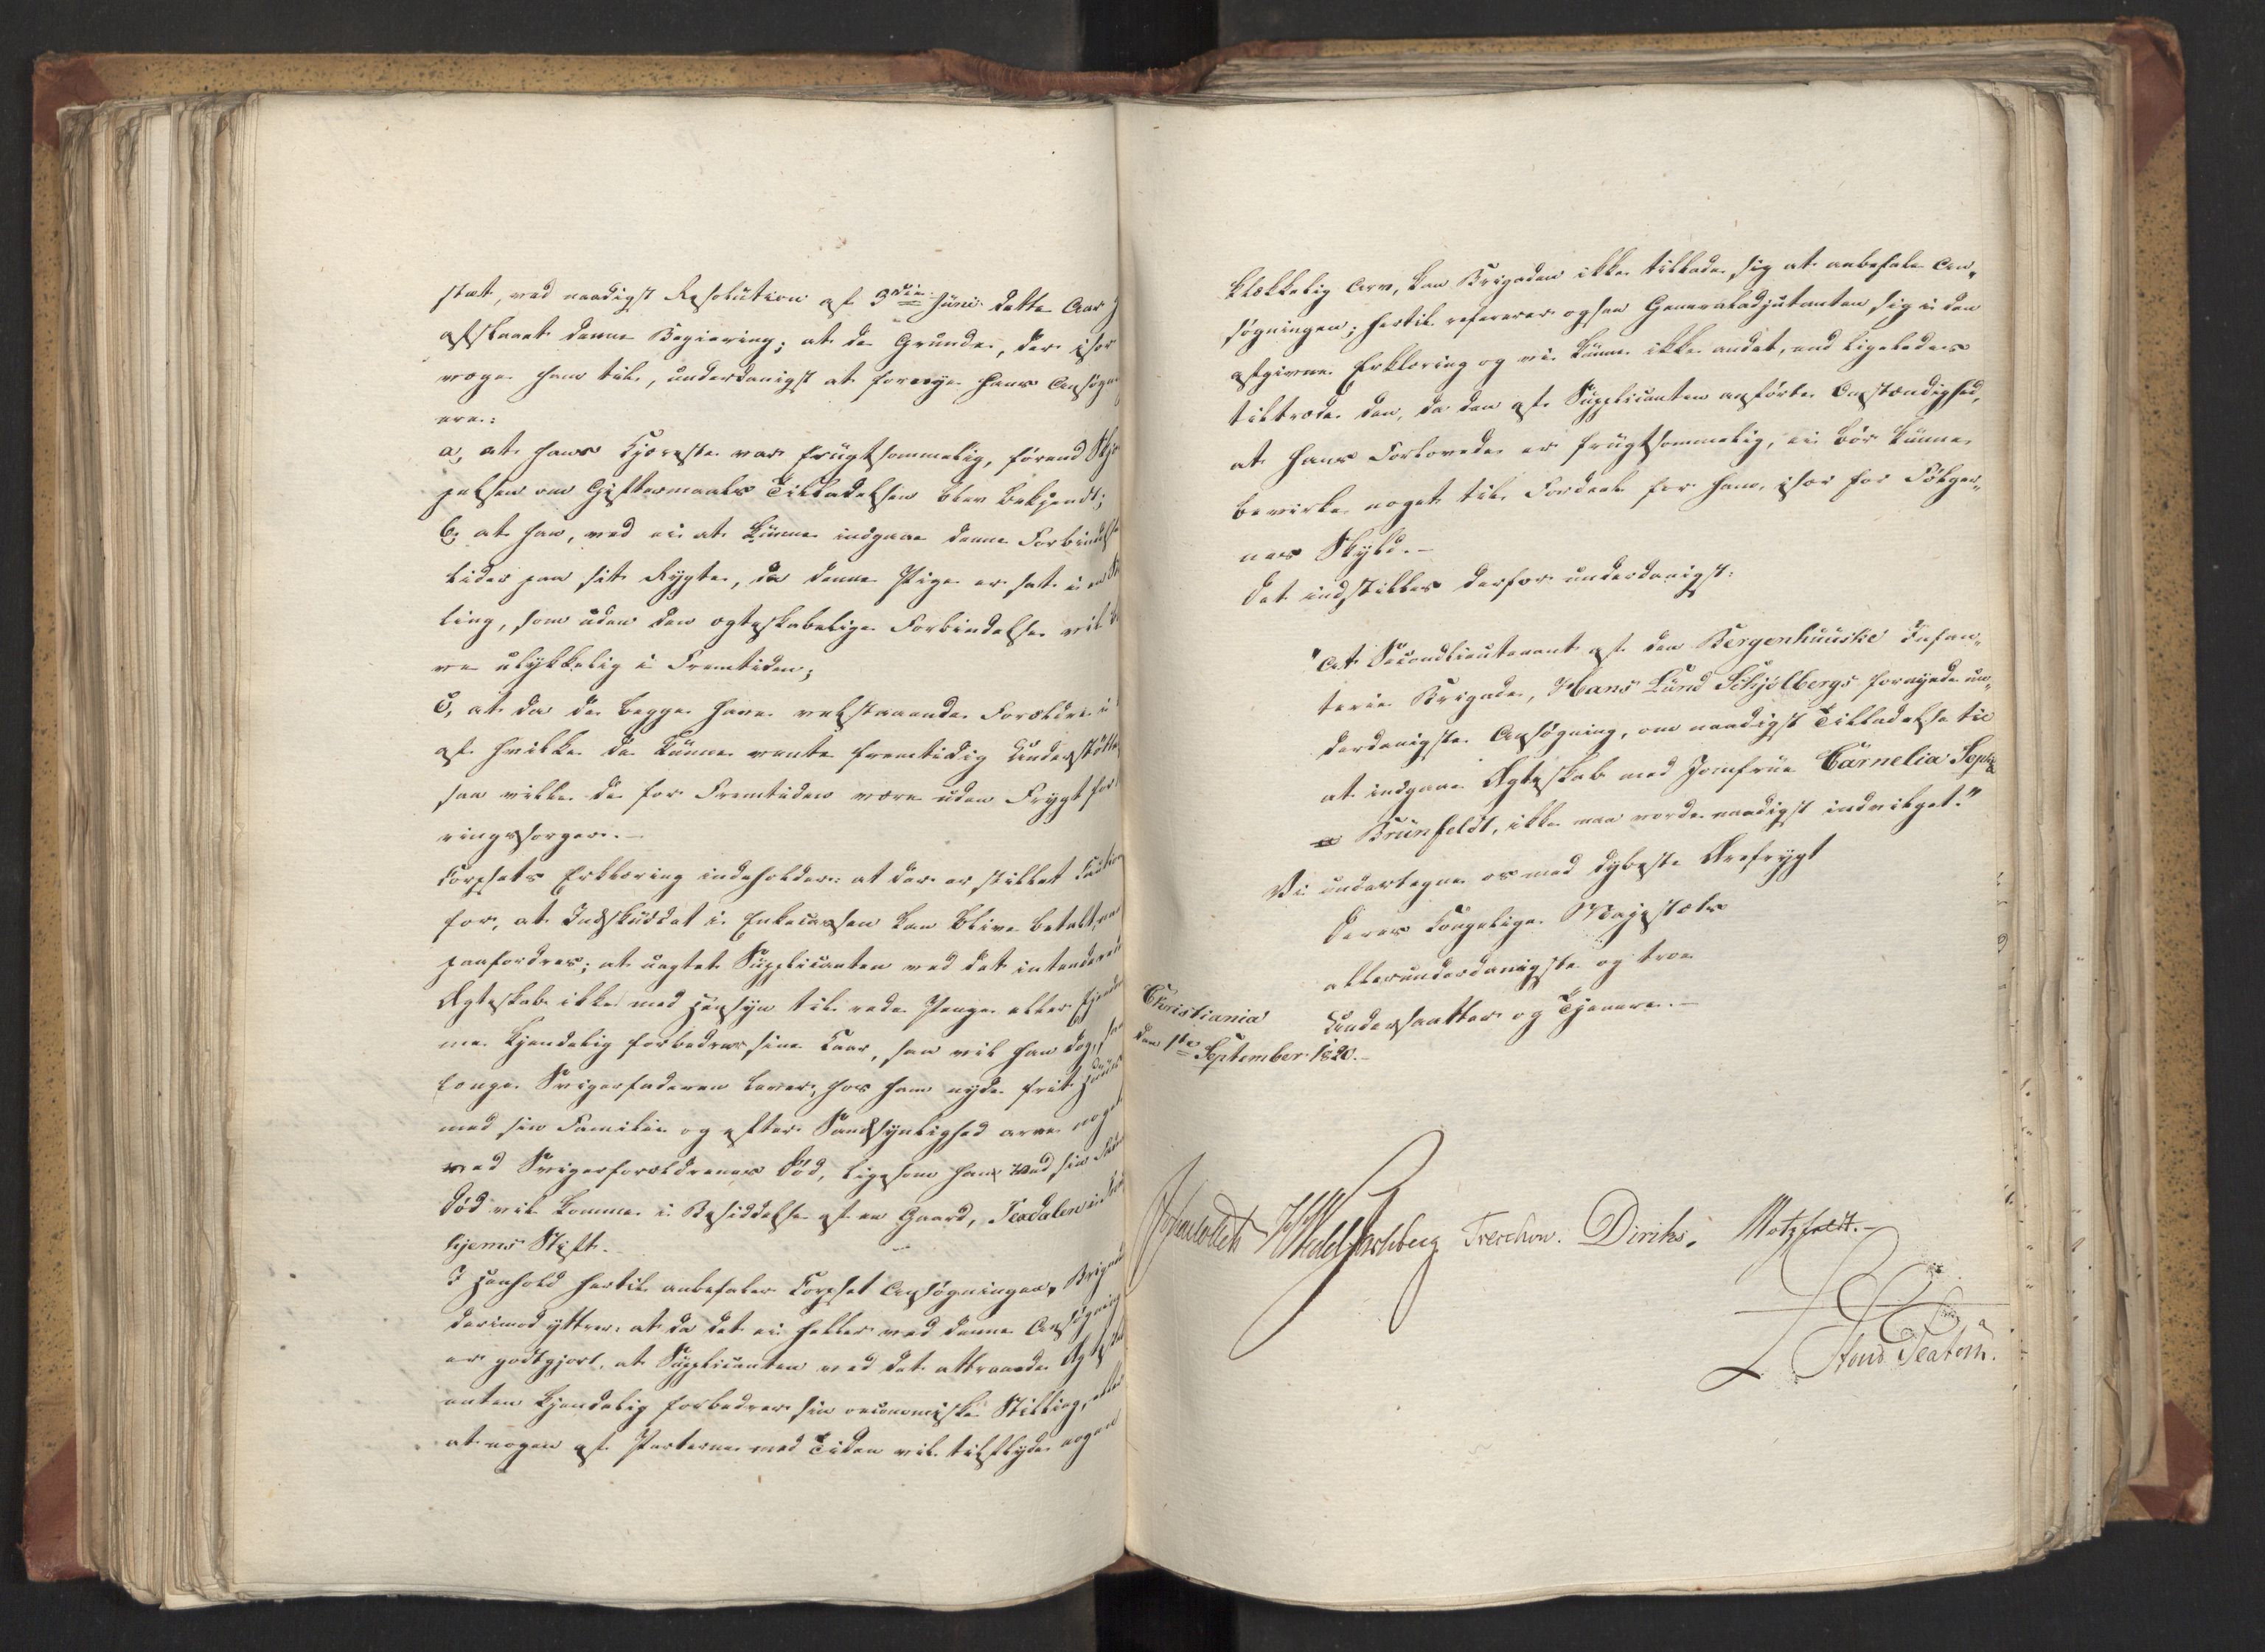 stæt, ved naadigst Resolution af 3die Juni dette Aar
afslaaet denne Begiæring; at de Grunde, der især
væge ham til, underdanigst at fornye hans Ansøgn
ere:
a, at hans Kjæreste var frugtsommelig, førend Skje
pelsen om Giftermaals Tilladelsen blev bekjendt;
b, at han, ved ei at kunne indgaae denne Forbindelse
lider paa sit Rygte, da denne Pige er sat i en
ling, som uden den ægteskabelige Forbindelse vil
ve ulykkelig i Fremtiden;
c, at da de begge have velstaaende Forældre
af hvilke de kunne vente fremtidig Understøtte
saa ville de for Fremtiden være uden Frygt for
ringssorger.–
Corpsets Erklæring indeholder: at der er stillet Caution
for, at Indskuddet i Enkecassen kan blive betalt, naar
paafordres; at uagtet Supplicanten ved det intenderede
Ægteskab ikke med Hensyn til rede Penge eller Eiendom
me kjendelig forbedrer sine Kaar, saa vil han dog, saa
længe Svigerfaderen lever, hos ham nyde frit Huus
med sin Familie og efter Sandsynlighed arve noget
ved Svigerforældrenes Død, ligesom han ved sin Fad
Død vil komme i Besiddelse af en Gaard, Teadalen i
hjems Stift.
I Henhold hertil anbefaler Corpset Ansøgningen, Brigaden
derimod yttrer: at da det ei heller ved denne Ansøgning
er godtgjort, at Supplicanten ved det attraaede Ægteskab
enten kjendelig forbedrer sin oeconomiske Stilling, eller
at nogen af Parterne med Tiden vil tilflyde nogen
klækkelig Arv, kan Brigaden ikke tillade sig at anbefale An„
søgningen; hertil refererer ogsaa Generaladjutanten sig i den
afgivne Erklæring og vi kunne ikke andet, end ligeledes
tiltræde den, da den af Supplicanten anførte Omstændighed,
at hans Forlovede er frugtsommelig, ei bør kunne
bevirke noget til Fordeel for ham, især for Følger„
nes Skyld.–
Det indstilles derfor underdanigst:
"At Secondlieutenant af den Bergenhuuske Infan„
terie Brigade, Hans Lund Schjølbergs fornyede un„
derdanigste Ansøgning, om naadigst Tilladelse til
at indgaae Ægteskab med Jomfrue Carnelia Soph
a Brunfeldt, ikke maa vorde naadigst indvilget."
Vi undertegne os med dybeste Ærefrygt
Deres Kongelige Majestæts
allerunderdanigste og troe
Undersaatter og Tjenere.–
Christiania
den 1te September 1820.–
Wedel Jarlsberg Treschow. Diriks. Motzfeldt.–